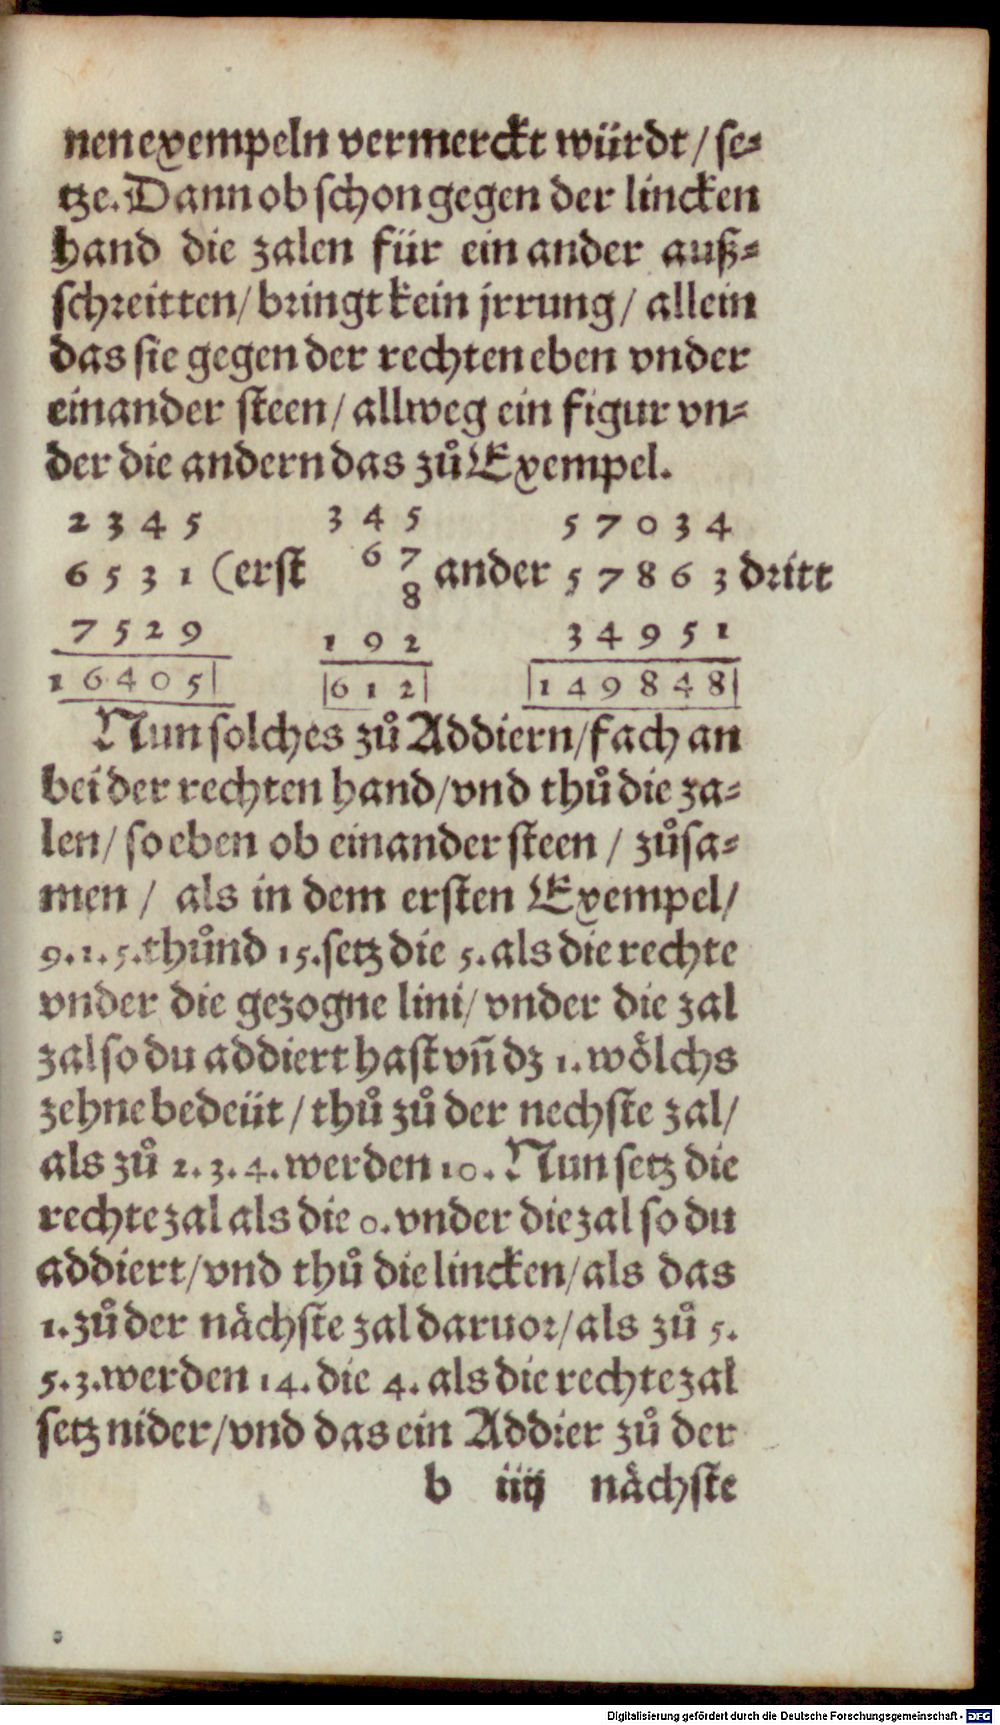 nen exempeln vermerckt würdt / se⸗
tze. Dann ob schon gegen der lincken
hand die zalen für ein ander auß⸗
schreitten / bringt kein jrrung / allein
das sie gegen der rechten eben vnder
einander steen / allweg ein figur vn⸗
der die andern das zů Exempel.
2 3 4 5 3 4 5 5 7 0 3 4
6 5 3 1 (erst 6 7 ander 5 7 8 6 3 dritt
8
7 5 2 9 1 9 2 3 4 9 5 1
1 6 4 0 5| |6 1 2| |1 4 9 8 4 8|
Nun solches zů Addiern / fach an
bei der rechten hand / vnd thů die za⸗
len / so eben ob einander steen / zůsa⸗
men / als in dem ersten Exempel /
9. 1. 5. thůnd 15. setz die 5. als die rechte
vnder die gezogne lini / vnder die zal
zal so du addiert hast vn̄ dz 1. wölchs
zehne bedeüt / thů zů der nechste zal /
als zů 2. 3. 4. werden 10. Nun setz die
rechte zal als die 0. vnder die zal so du
addiert / vnd thů die lincken / als das
1. zů der nächste zal daruor / als zů 5.
5. 3. werden 14. die 4. als die rechte zal
setz nider / vnd das ein Addier zů der
b iiij nächste
Digitalisierung gefördert durch die Deutsche Forschungsgemeinschaft - DFG